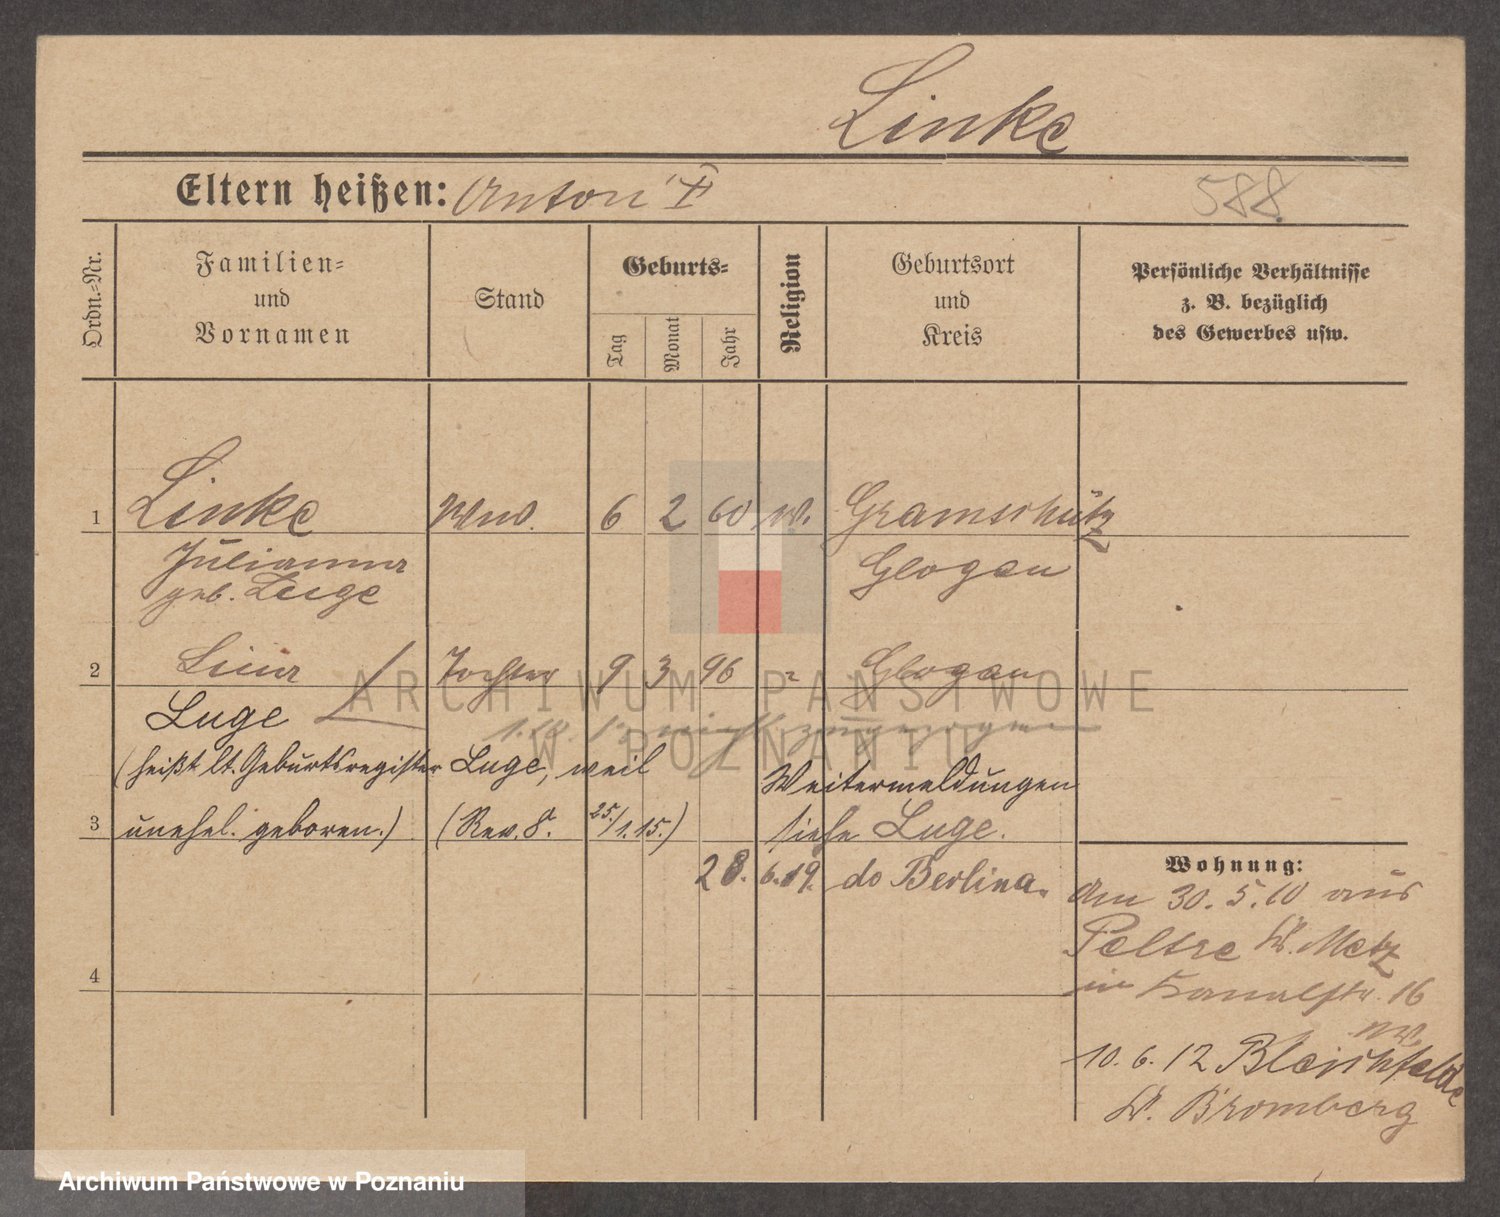 Linke
Eltern heißen: Anton
588.
Ordn.-Nr.
Familien-
und
Vornamen
Stand
Geburts-
Tag
Monat
Jahr
Religion
Geburtsort
und
Kreis
Persönliche Verhältnisse
z. B. bezüglich
des Gewerbes usw.
1 Linke Wwe. 6 2 60 Gramschütz
Julianna Glogau
geb. Luge
2 Tochter 9 3 96 Glogau
Luge
(heißt lt. Geburtsregister Luge, weil
Weitermeldungen
3 unehel. geboren.) (Rev. 8. 25./1.15.) siehe Luge.
28. 6.19. do Berlina.
Wohnung:
Am 30. 5. 10 aus
Peltre Kr. Metz
in Kanalstr. 16
4
10. 6. 12 Bleichfelde
Kr. Bromberg
ARCHIWUM PAŃSTWOWE
W POZNANIU
Archiwum Państwowe w Poznaniu